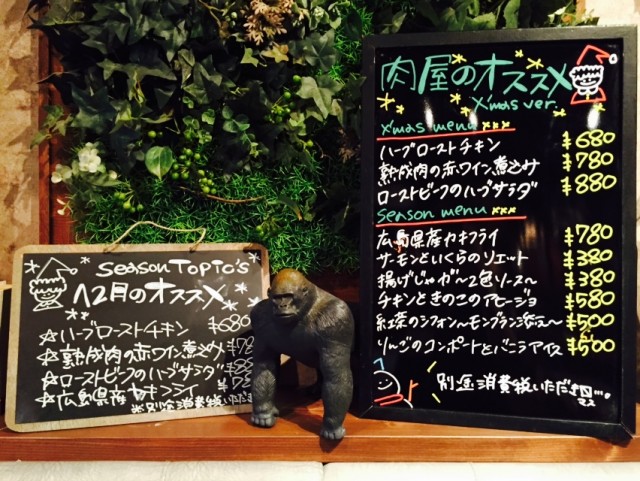 Season Topic's
12月のオススメ
☆ハーブローストチキン ¥680
☆熟成肉の赤ワイン煮込み ¥78
☆ローストビーフのハーブサラダ ¥88
☆広島県産カキフライ ¥78
※別途消費税いただき
肉屋のオススメ
X'mas ver.
X'mas menu ×××
ハーブローストチキン ¥680
熟成肉の赤ワイン煮込み ¥780
ローストビーフのハーブサラダ ¥880
season menu ×××
広島県産カキフライ ¥780
サーモンといくらのリエット ¥380
揚げじゃが〜2色ソース〜 ¥380
チキンときのこのアヒージョ ¥580
紅茶のシフォン〜モンブラン添え〜 ¥500
りんごのコンポートとバニラアイス ¥500
別途消費税いただき□…
マス